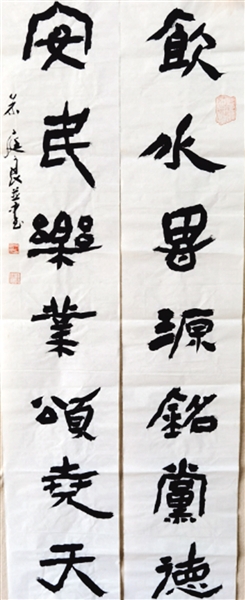 飲水思源銘黨德
安民樂業頌堯天
庭良並書